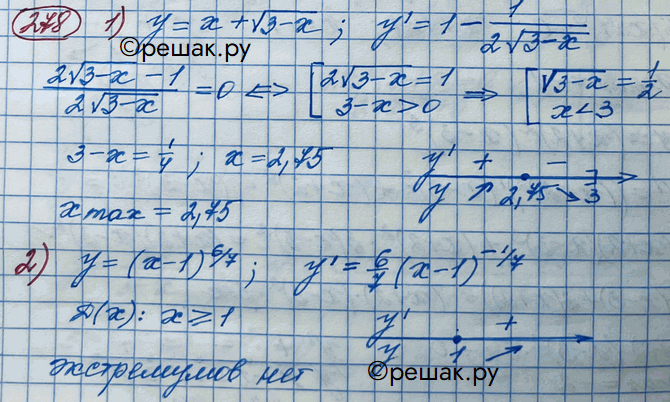 278 1) y = x + √3-x ; y' = 1 - 1/(2√3-x)
©решак.ру
(2√3-x - 1)/(2√3-x) = 0 <=> [ 2√3-x = 1 => [ √3-x = 1/2
3-x > 0 x < 3
3-x = 1/4 ; x = 2,75 y' + -
y ↗ 2,75 ↘ 3
x max = 2,75
2) y = (x-1)^6/7 ; y' = 6/7 (x-1)^-1/7
D(x): x ⩾ 1 y' +
y 1 ↗
экстремумов нет ©решак.ру